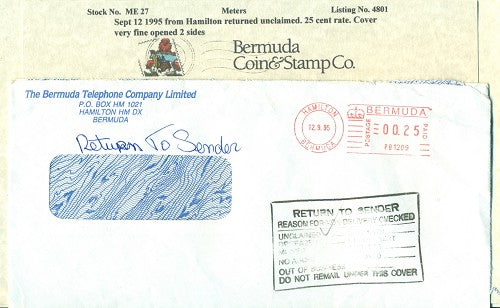 Stock No. ME 27 Meters Listing No. 4801
Sept 12 1995 from Hamilton returned unclaimed. 25 cent rate. Cover
very fine opened 2 sides
Bermuda
Coin & Stamp Co.
The Bermuda Telephone Company Limited
P.O. BOX HM 1021
HAMILTON HM DX
BERMUDA
Return To Sender
HAMILTON
12.9.95
BERMUDA
BERMUDA
POSTAGE 00.25 PAID
PB1209
RETURN TO SENDER
REASON FOR DELIVERY CHECKED
UNCLAIMED
OUT OF BUSINESS
DO NOT REMAIL UNDER THIS COVER